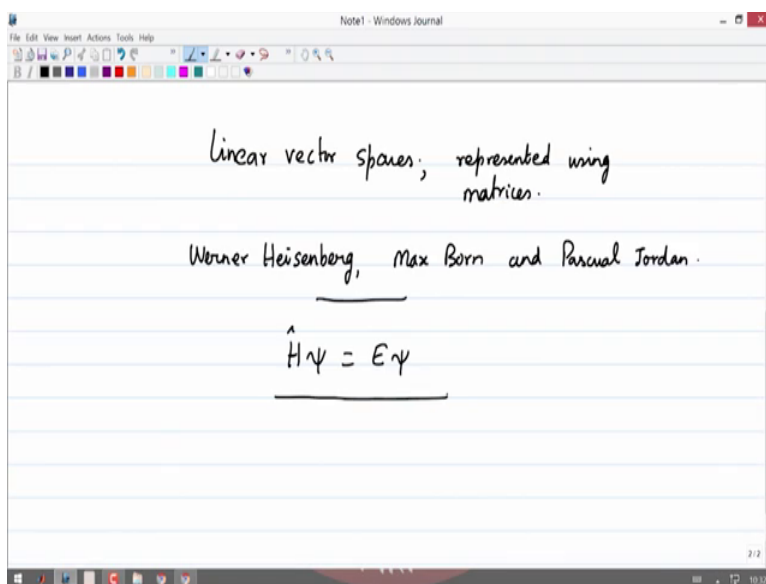 Note1 - Windows Journal
File Edit View Insert Actions Tools Help
Linear vector spaces; represented using
matrices.
Werner Heisenberg, Max Born and Pascual Jordan.
Ĥψ = Eψ
2/2